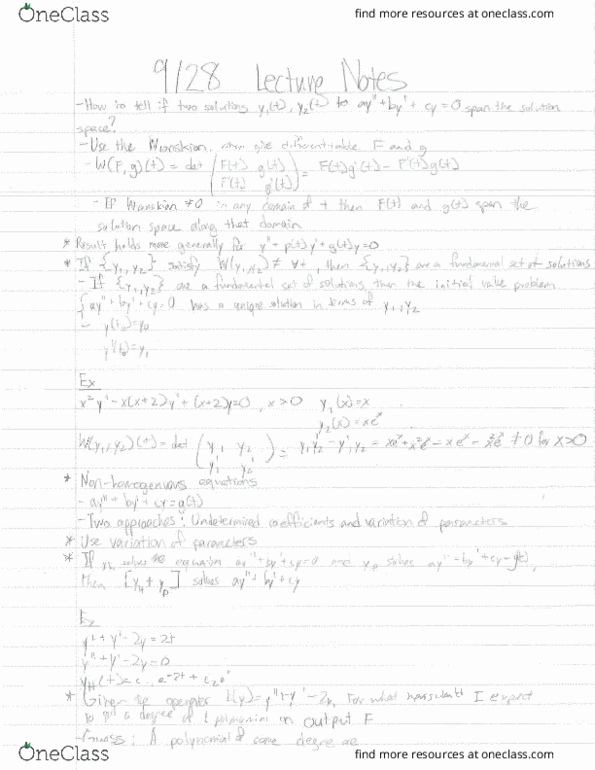 OneClass
find more resources at oneclass.com
9/28 Lecture Notes
-How to tell if two solutions y₁(t), y₂(t) to ay''+by'+cy=0 span the solution
space?
-Use the Wronskian, give differentiable F and g
-W(F,g)(t) = det (F(t) g(t) F'(t) g'(t)) = F(t)g'(t) - F'(t)g(t)
-If Wronskian ≠0 in any domain of t then F(t) and g(t) span the
solution space along that domain
* Result holds more generally for y''+p(t)y'+g(t)y=0
* If {y₁, y₂} satisfy W(y₁,y₂) ≠ ∀t, then {y₁,y₂} are a fundamental set of solutions
-If {y₁,y₂} are a fundamental set of solutions, then the initial value problem
{ay''+by'+cy=0 has a unique solution in terms of y₁,y₂
- y(t₀)=y₀
y'(t₀)=y₁
Ex
x²y''-x(x+2)y'+(x+2)y=0, x>0 y₁(x)=x
y₂(x)=xeˣ
W(y₁,y₂)(t)=det (y₁ y₂ y₁' y₂') = y₁y₂'-y₁'y₂ = ≠0 for x>0
* Non-homogenious equations
- ay''+by'+cy=g(t)
-Two approaches: Undetermined coefficients and variation of parameters
* Use variation of parameters
* If solves the equation ay''+by'+cy=0 and yₚ solves ay''-by'+cy=g(t),
then [y_H+yₚ] solves ay''+by'+cy
Ex
y''+y'-2y=2t
y''+y'-2y=0
* Given the operator for what I expect
to a degree of polynomial in output F
-Guess: A polynomial of same degree are
OneClass
find more resources at oneclass.com